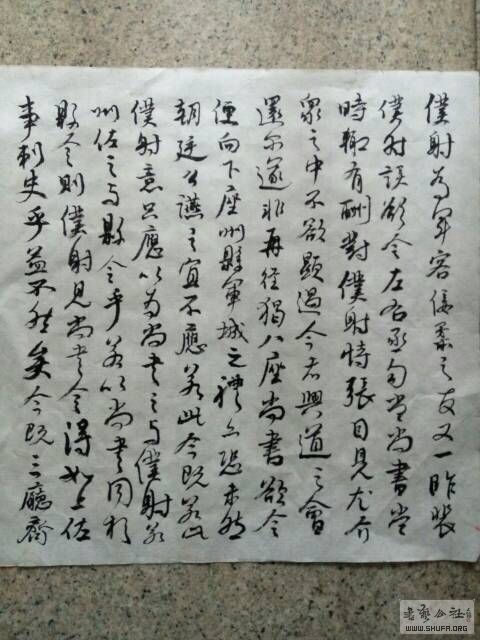 僕射為軍容佞柔之友又一昨裴
僕射誤欲令左右丞勾當尚書當
時輒有酬對僕射恃張目見尤介
眾之中不欲顯過今者興道之會
還爾遂非再徑猲八座尚書欲令
便向下座州縣軍城之禮亦恐未然
朝廷公讌之宜不應若此今既若此
僕射意只應以為尚書之与僕射若
州佐之与縣令乎若以尚書同於
縣令則僕射見尚書令得如上佐
事刺史乎益不然矣今既三廳齊
書藝公社
WWW.SHUFA.ORG